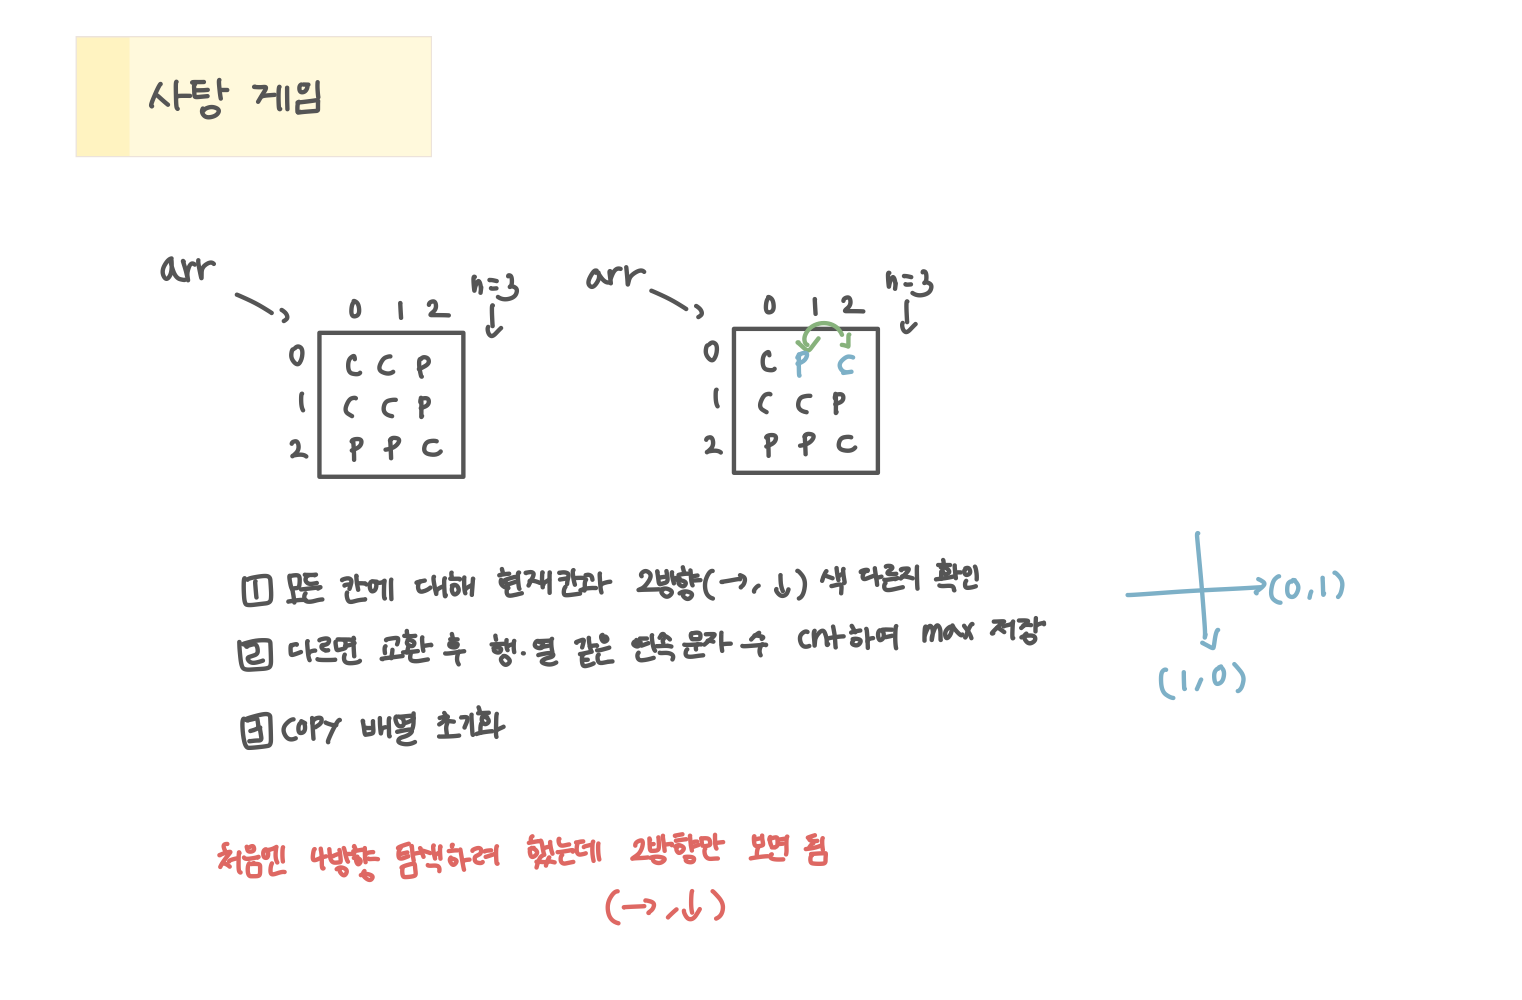 사탕 게임
arr
n=3
0 1 2
0 C C P
1 C C P
2 P P C
arr
n=3
0 1 2
0 C P C
1 C C P
2 P P C
1 모든 칸에 대해 현재칸과 2방향(→, ↓) 색 다른지 확인
2 다르면 교환 후 행·열 같은 연속 문자 수 cnt하여 max 저장
3 copy 배열 초기화
(0,1)
(1,0)
처음엔 4방향 탐색하려 했는데 2방향만 보면 됨
(→, ↓)